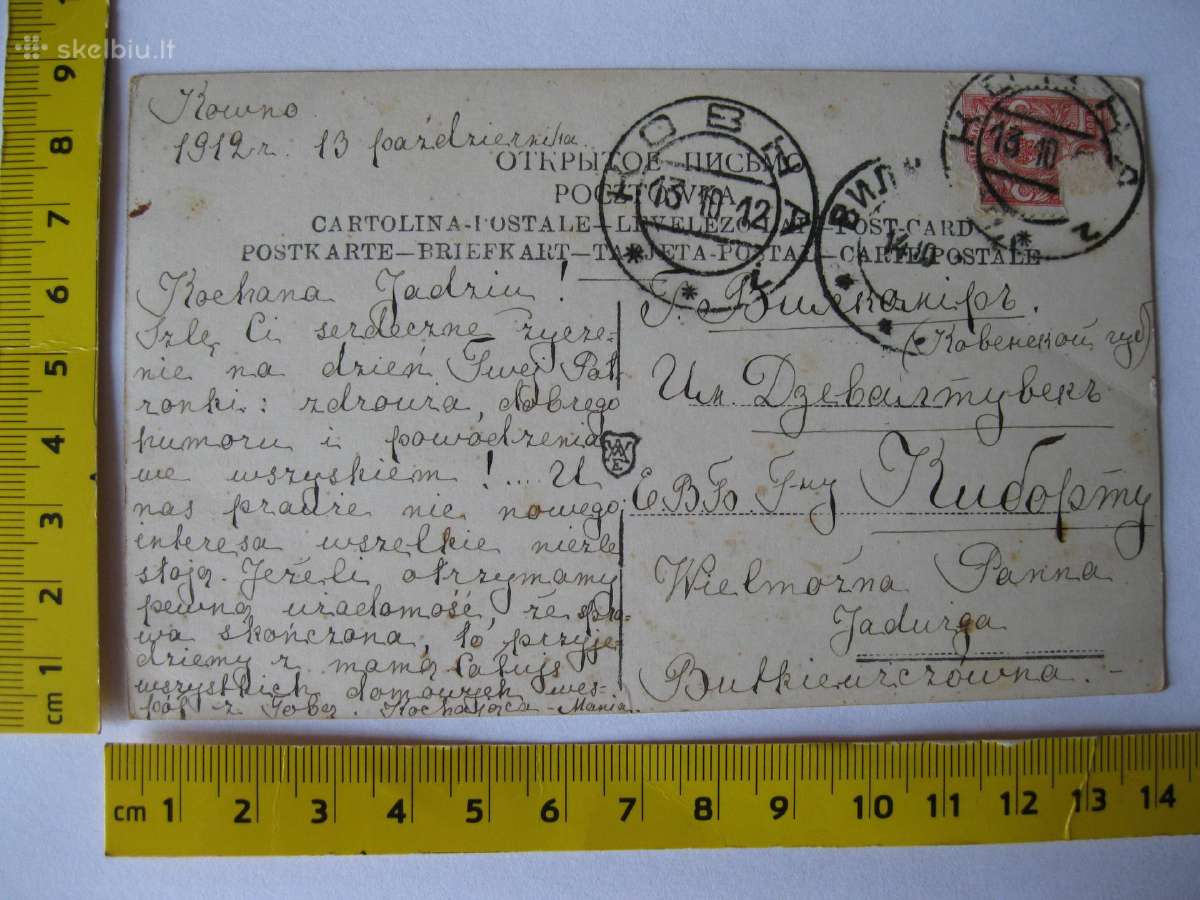 skelbiu.lt
Kowno
1912 r. 13 października
ОТКРЫТОЕ ПИСЬМО
POCZTÓWKA
CARTOLINA-POSTALE—LEVELEZŐ-LAP—POST-CARD
POSTKARTE—BRIEFKART—TARJETA-POSTAL—CARTE POSTALE
КОВНА
13 10 12
КОВНА
13 10
ВИЛ
14 10
Kochana Jadziu!
Szlę Ci serdeczne życze-
nie na dzień Twej Pat-
ronki: zdrowia, dobrego
humoru i powodzenia
we wszyskiem! .... U
nas prawie nic nowego
interesa wszelkie nieźle
stoją. Jeżeli otrzymamy
pewną wiadomość, że spra-
wa skończona, to przyje-
dziemy z mamą. Całuję
wszystkich domowych wes-
pół z Tobą. Kochająca Mania.
WAE
Г. Вилкомиръ.
(Ковенской губ)
Им. Дзевалтувекъ
Е.В.Б. Г-ну Киборту
Wielmożna Panna
Jadwiga
Butkiewiczówna.
cm 1 2 3 4 5 6 7 8 9
cm 1 2 3 4 5 6 7 8 9 10 11 12 13 14